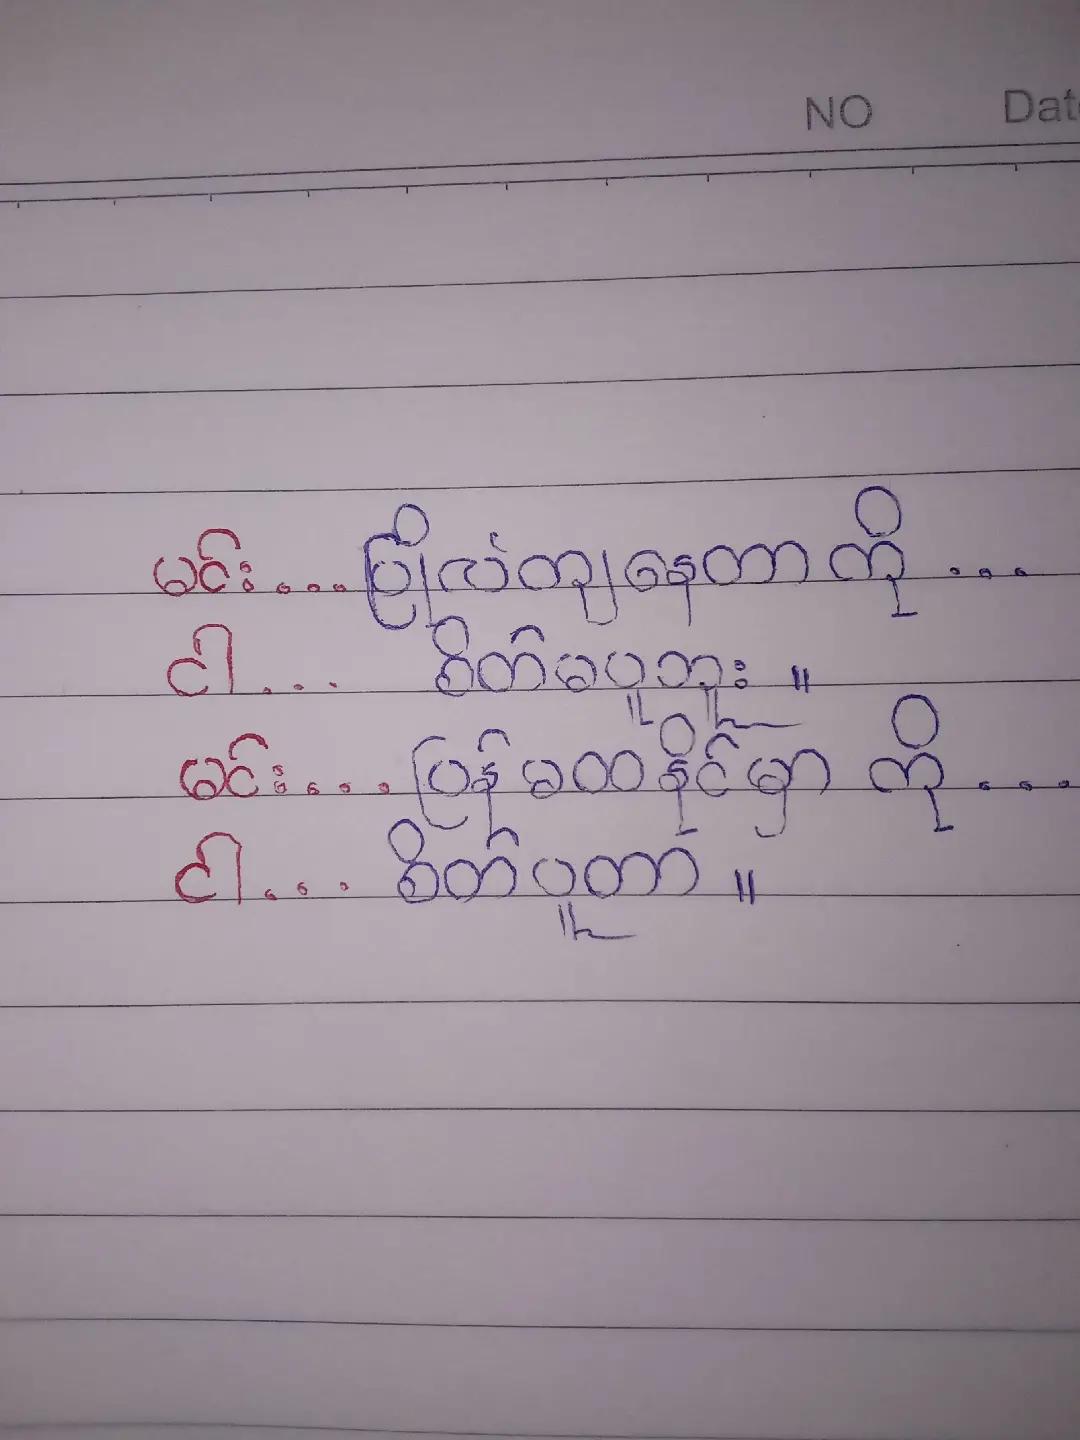 NO Dat
မင်း... ပြိုလဲကျနေတာ ကို ...
ငါ... စိတ်မပူဘူး ။
မင်း... ပြန်မထနိုင်မှာ ကို ...
ငါ... စိတ်ပူတာ ။